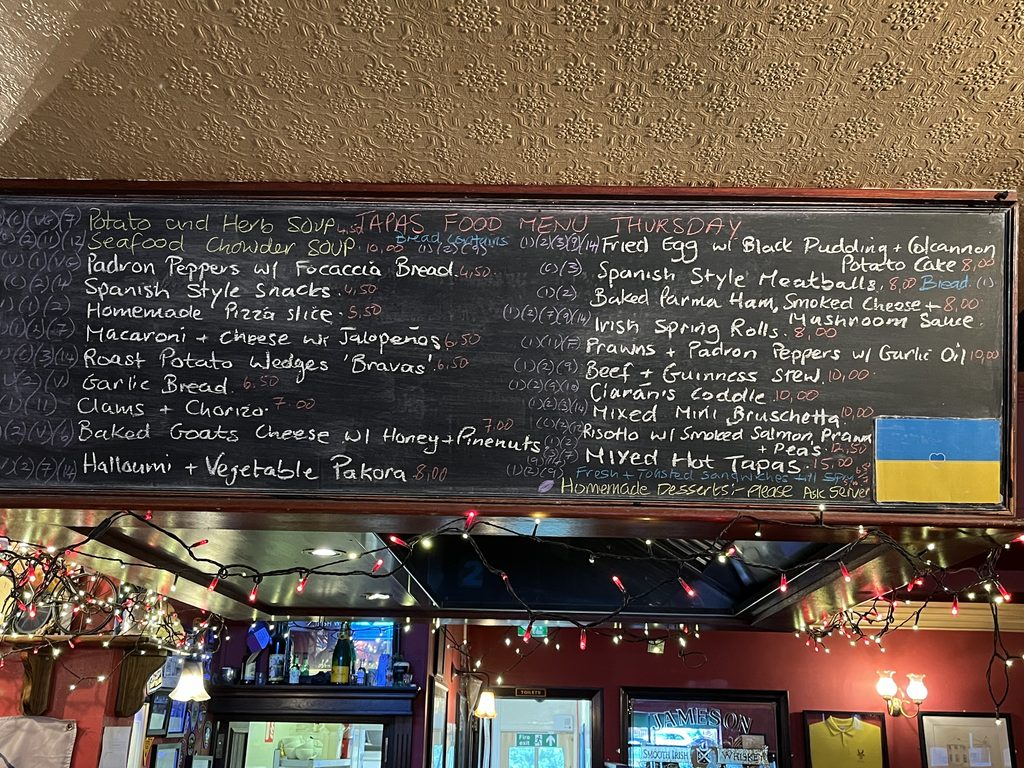 TAPAS FOOD MENU THURSDAY
Potato and Herb Soup 4,50
Seafood Chowder Soup. 10,00 Bread Contains
Padron Peppers w/ Focaccia Bread. 4,50
Spanish Style Snacks. 4,50
Homemade Pizza slice. 5.50
Macaroni + Cheese w/ Jalapeños 6.50
Roast Potato Wedges 'Bravas' 6,50
Garlic Bread. 6.50
Clams + Chorizo. 7.00
7,00
Baked Goats Cheese w/ Honey + Pinenuts
(2)(7)(14) Halloumi + Vegetable Pakora. 8,00
Fried Egg w/ Black Pudding + Colcannon
Potato Cake 8,00
(C)(3). Spanish Style Meatballs. 8,00 Bread (1)
(1)(2) Baked Parma Ham, Smoked Cheese + 8,00
Mushroom Sauce.
(1)(2)(7)(9)(14) Irish Spring Rolls. 8,00
Prawns + Padron Peppers w/ Garlic Oil 10,00
(1)(2)(9) Beef + Guinness Stew. 10,00.
Ciarán's Coddle. 10,00
Mixed Mini Bruschetta. 10,00
Risotto w/ Smoked Salmon, Prawn
+ Peas. 12,50
Mixed Hot Tapas. 15,00
Fresh + Toasted Sandwiches till 5pm
Homemade Desserts:- Please Ask Server
TOILETS
Fire exit
JAMESON
SMOOTH IRISH WHISKEY